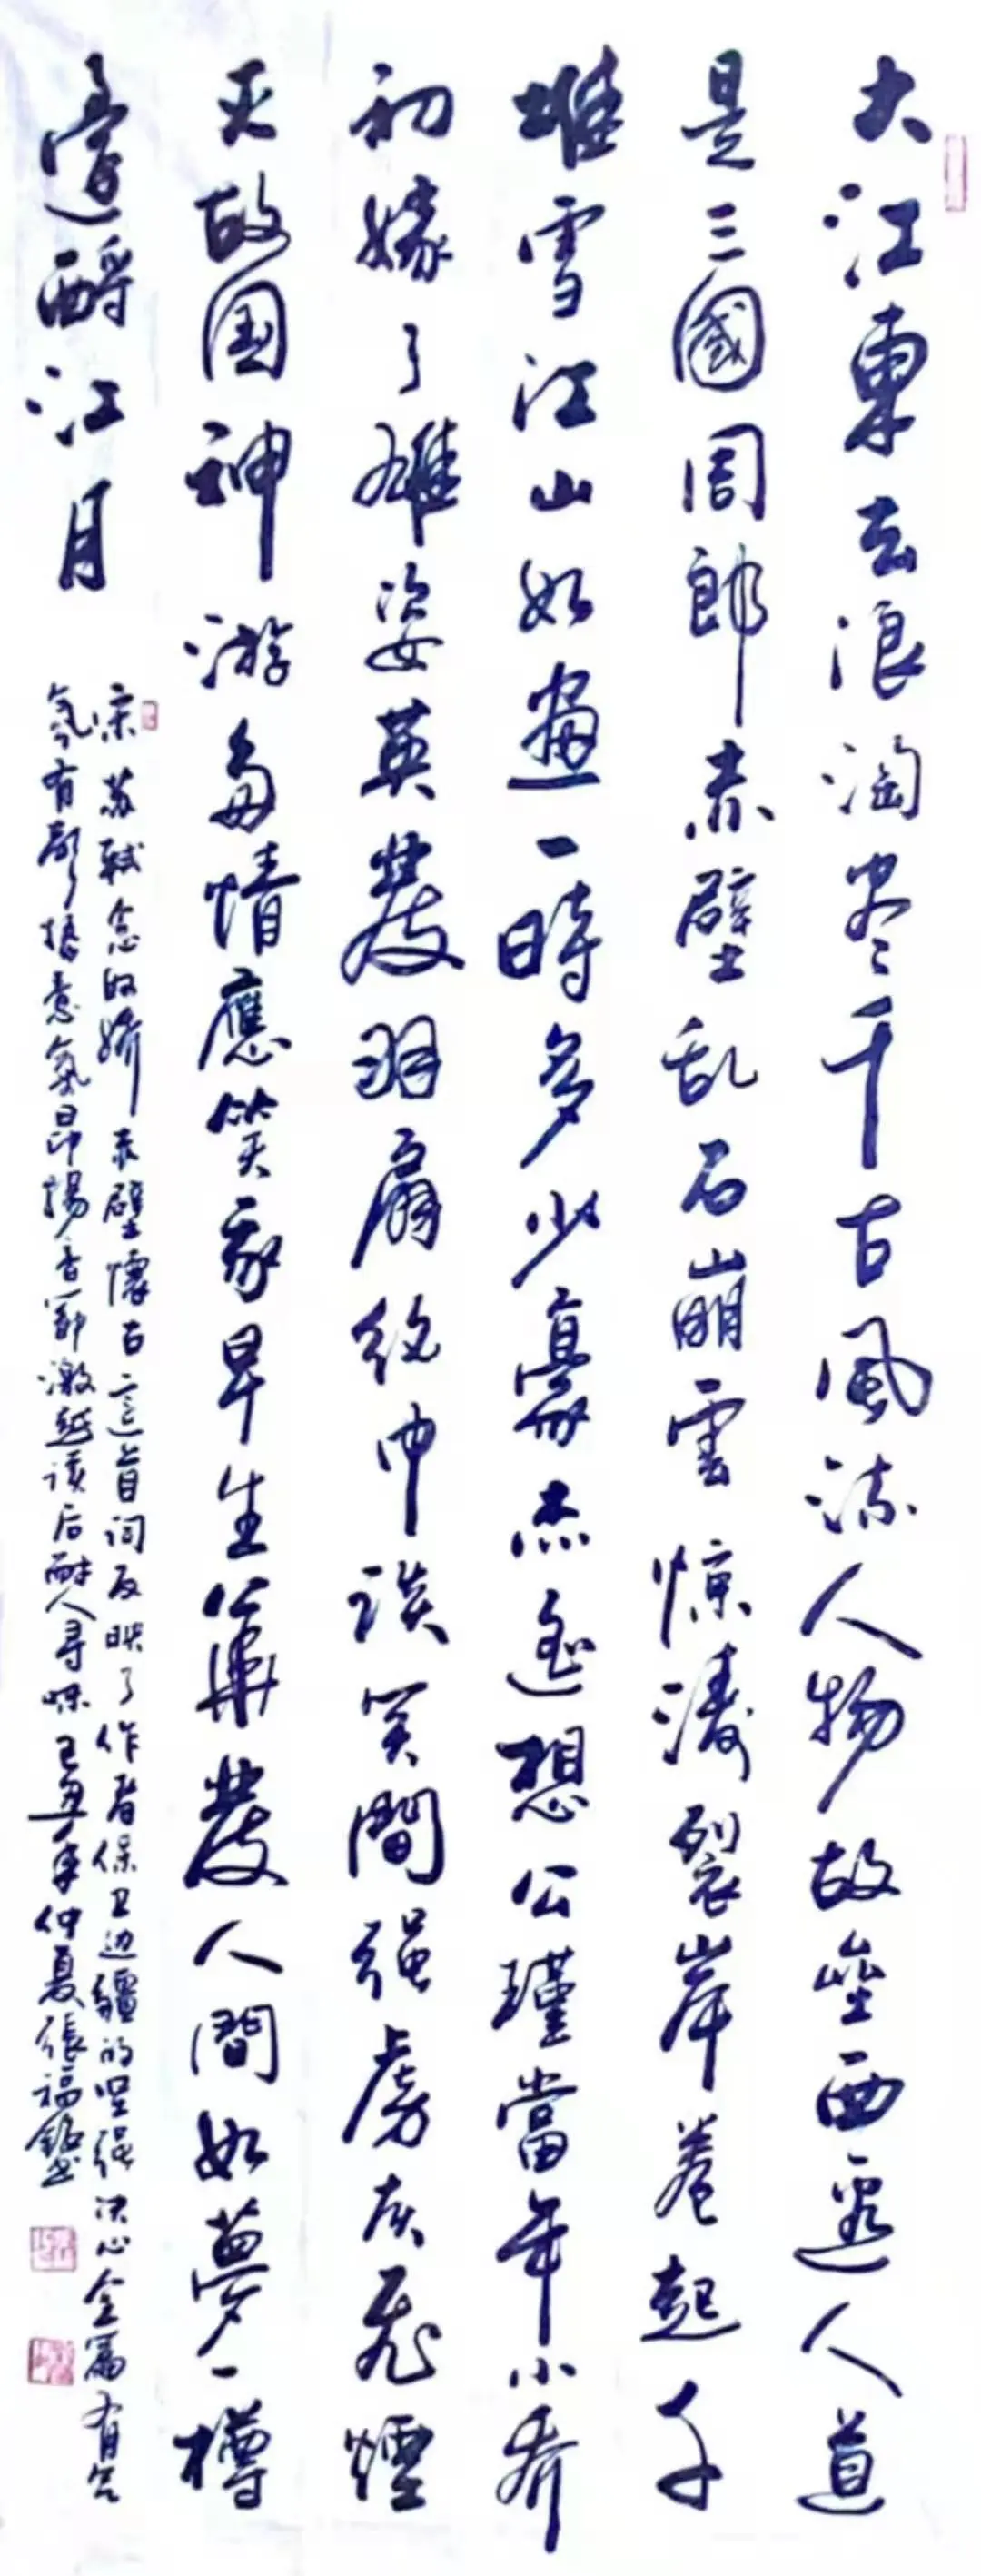 大江東去浪淘尽千古風流人物故壘西邊人道
是三國周郎赤壁乱石崩雲惊濤裂岸卷起千
堆雪江山如畫一時多少豪杰遙想公瑾當年小喬
初嫁了雄姿英發羽扇纶巾談笑間强虜灰飛煙
灭故国神游多情應笑我早生華發人間如夢一樽
還酹江月
宋苏軾念奴娇赤壁懷古這首词反映了作者保卫边疆的坚强决心全篇有
氣有意氣昂揚音節激越读后耐人寻味己丑年仲夏張福